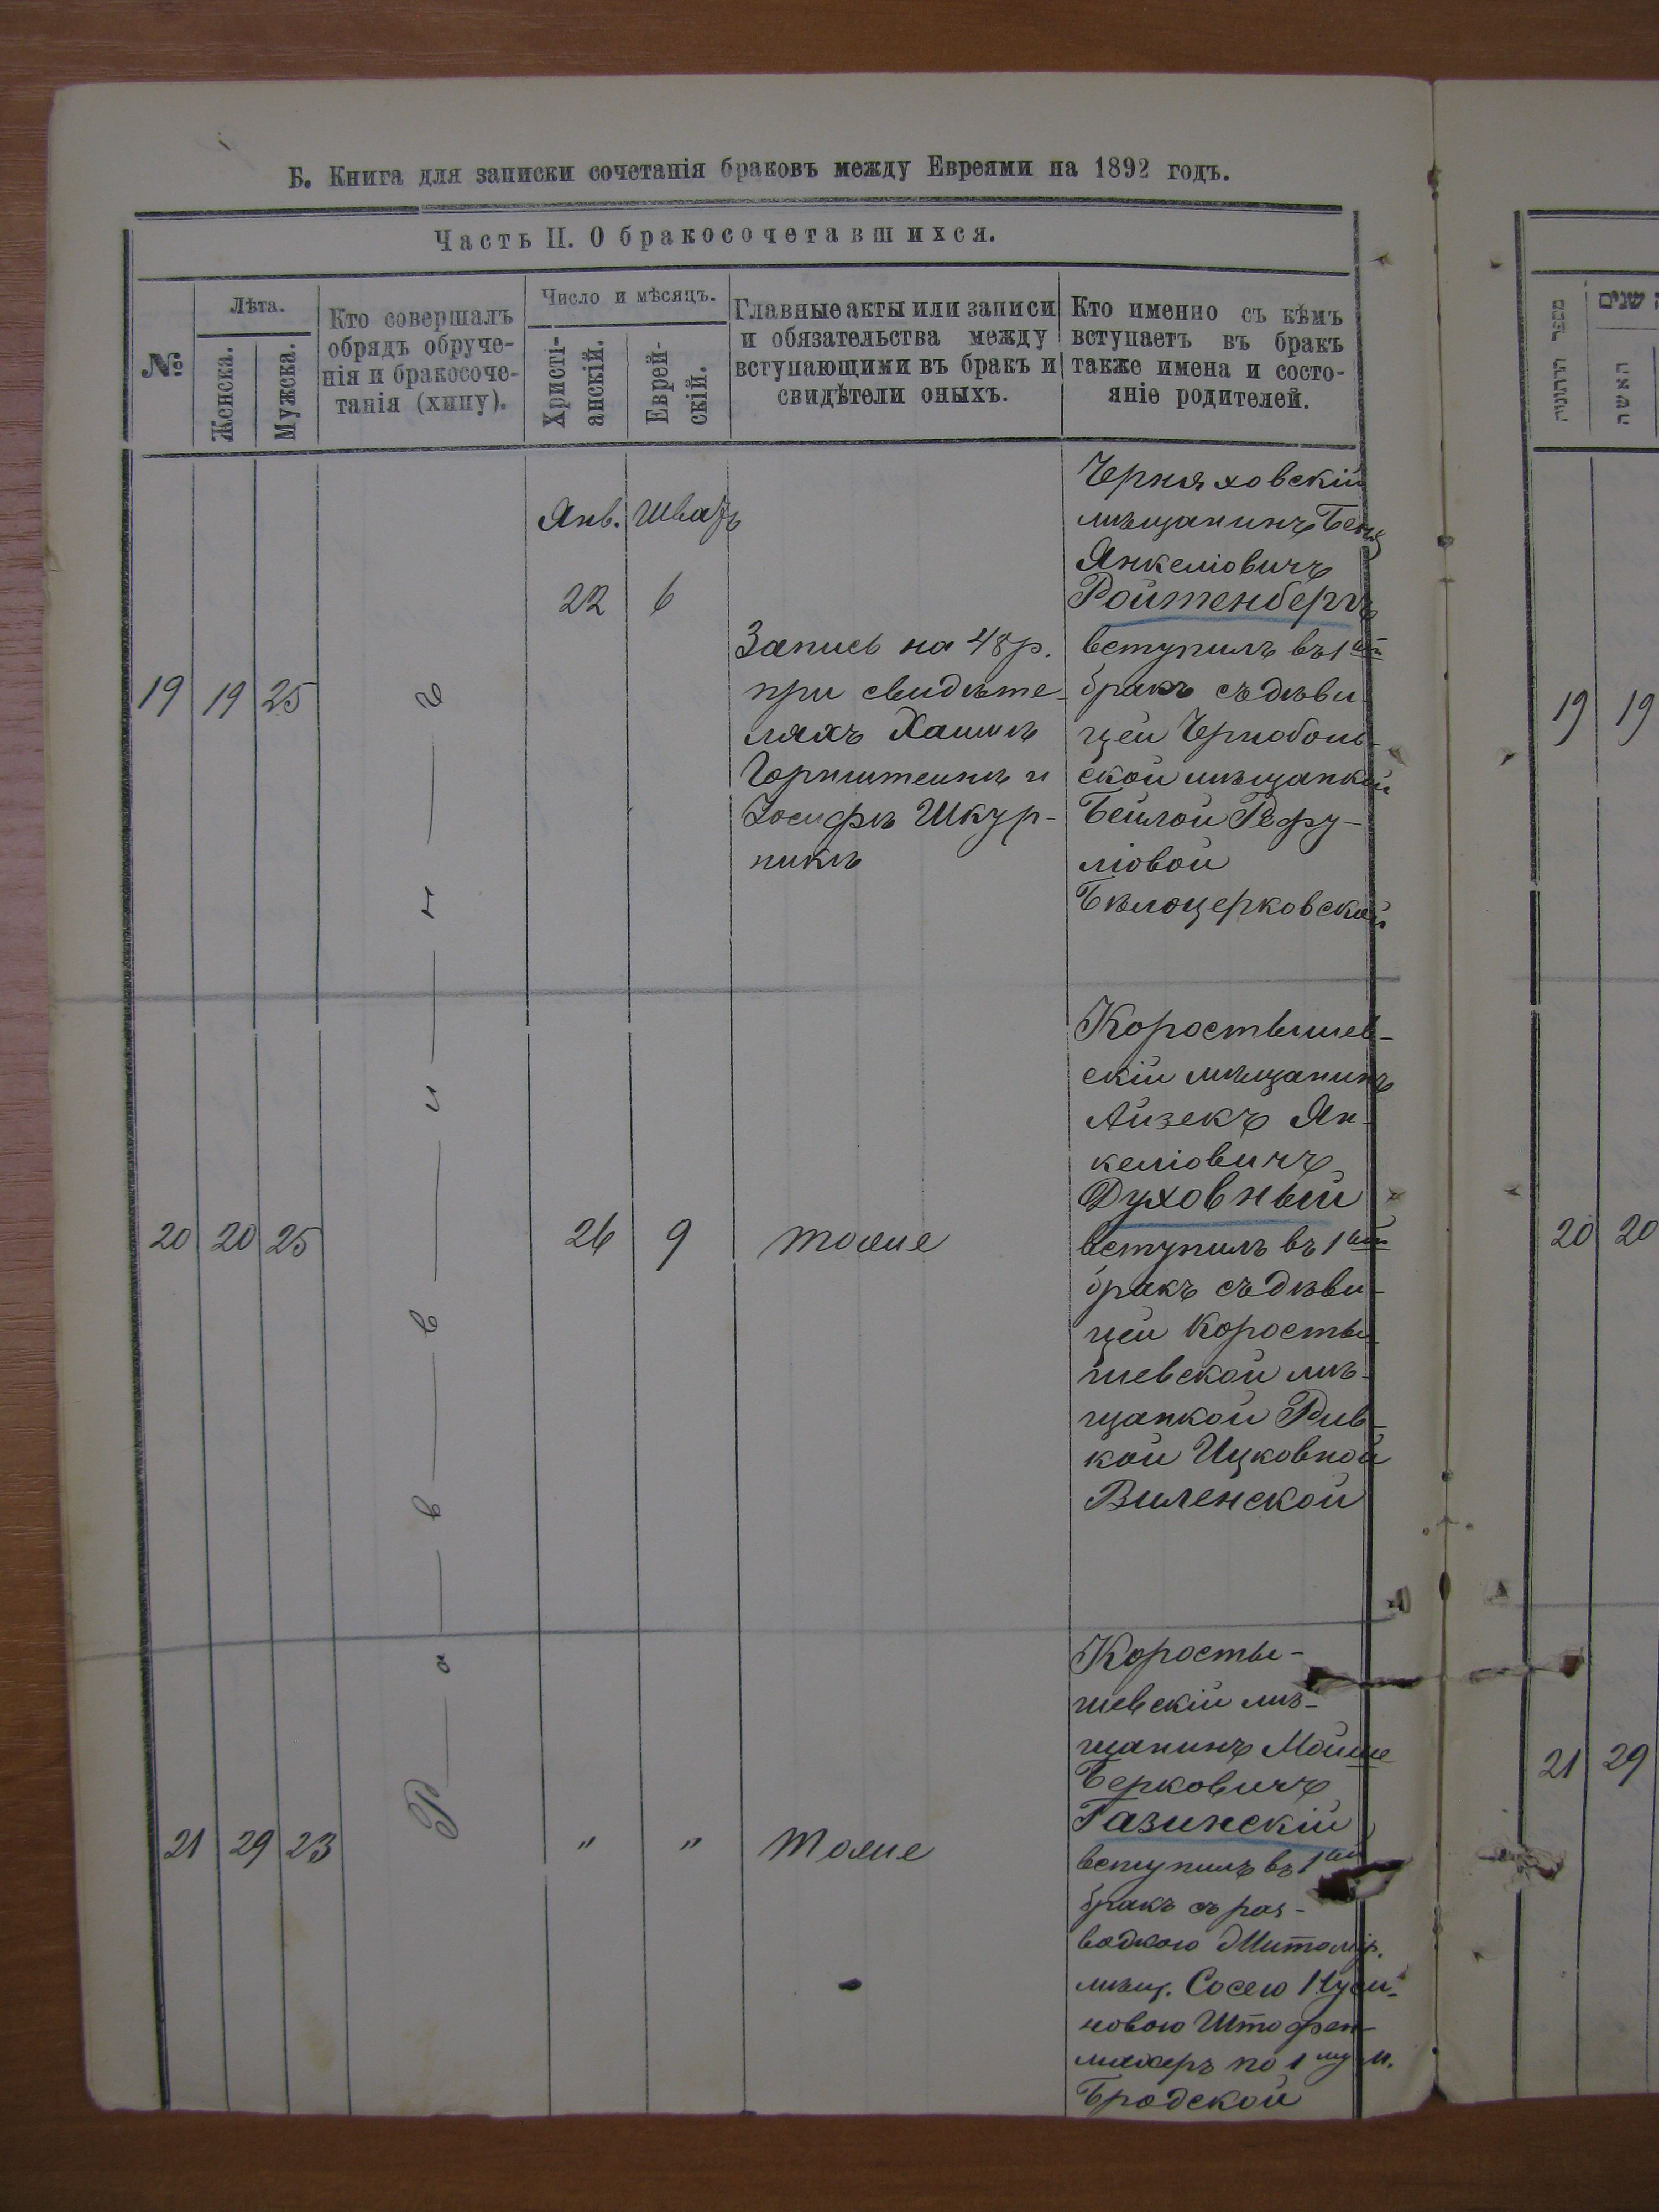 Б. Книга для записки сочетанія браковъ между Евреями на 1892 годъ.
Часть II. О бракосочетавшихся.
№
Лѣта.
Женска.
Мужска.
Кто совершалъ
обрядъ обруче-
нія и бракосоче-
танія (хипу).
Число и мѣсяцъ.
Христі-
анскій.
Еврей-
скій.
Главные акты или записи
и обязательства между
вступающими въ бракъ и
свидѣтели оныхъ.
Кто именно съ кѣмъ
вступаетъ въ бракъ
также имена и состо-
яніе родителей.
Р—а—в—в—и—н—ъ
Янв. Шватъ
22 6
19 19 25
Запись на 48 р.
при свидѣте-
ляхъ Хаимѣ
Горнштеинѣ и
Іосифѣ Шкур-
никѣ
Черняховскій
мѣщанинъ Бенц
Янкеліовичъ
Ройтенбергъ
вступилъ въ 1ый
бракъ съ дѣви-
цей Чернобыль-
ской мѣщанкой
Бейлой
ліовой
Бѣлоцерковской
20 20 25
26 9
тоже
Коростышев-
скій мѣщанинъ
Айзекъ Ян-
келіовичъ
Духовный
вступилъ въ 1ый
бракъ съ дѣви-
цей Коросты-
шевской мѣ-
щанкой Рив-
кой Ицковной
Виленской
21 29 23
" "
тоже
Коросты-
шевскій мѣ-
щанинъ Мойше
Берковичъ
Газинскій
вступилъ въ 1ый
бракъ съ раз-
водкою Житомір.
мѣщ. Сосею Нуси-
новою Штофен-
махеръ по 1му м.
Бродской
מספר החתונות
שנים
האשה
19 19
20 20
21 29